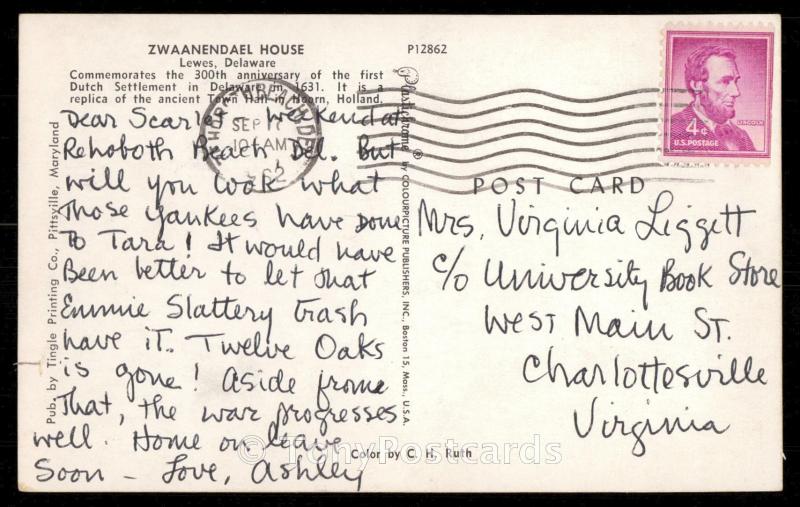 ZWAANENDAEL HOUSE
Lewes, Delaware
Commemorates the 300th anniversary of the first
Dutch Settlement in Delaware in 1631. It is a
replica of the ancient Town Hall in Hoorn, Holland.
P12862
SEP 17
10 AM
1962
Dear Scarlet - Weekend at
Rehoboth Beach Del. But
will you look what
those Yankees have done
to Tara! It would have
Been better to let that
Emmie Slattery trash
have it. Twelve Oaks
is gone! Aside frome
that, the war progresses
well. Home on leave
soon - Love, Ashley
Pub. by Tingle Printing Co., Pittsville, Maryland
Plastichrome ® by COLOURPICTURE PUBLISHERS, INC., Boston 15, Mass., U.S.A.
LINCOLN
4¢
U.S. POSTAGE
POST CARD
Mrs. Virginia Liggett
c/o University Book Store
West Main St.
Charlottesville
Virginia
© TonyPostcards
Color by C. H. Ruth